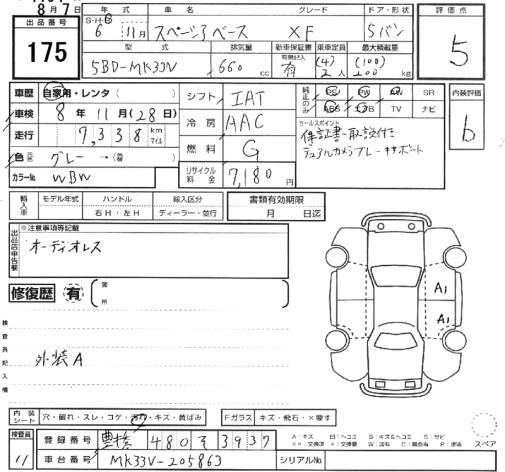 8月7日
出品番号 175
年式 車名 グレード ドア・形状
S・H・R 6年 11月 スペーシアベース XF 5バン
型式 排気量 新車保証書 乗車定員 最大積載量
5BD-MK33V 660cc 有無記入 有 (4) 2人 (100) 200kg
評価点 5
車歴 自家用・レンタ( )
車検 8年 11月(28日)
走行 7,338 km マイル
色 元色 グレー→(替)
カラーNo. WBW
シフト IAT
冷房 AAC
燃料 G
リサイクル料金 7,180
純正のみ PS PW AW SR
ABS エアB TV ナビ
セールスポイント
保証書・取説付き
デュアルカメラブレーキサポート
内装評価 b
輸入車 モデル年式 ハンドル 輸入区分
年 右H・左H ディーラー・並行
書類有効期限
月 日迄
出品店申告欄 ※注意事項等記載
オーディオレス
修復歴 有 箇所
検査員記入欄
外装A
A1
A1
内装シート 穴・破れ・スレ・コゲ・汚れ・キズ・黄ばみ
Fガラス キズ・飛石・×要す
検査員 11
登録番号 豊橋 480 そ 3937
車台番号 MK33V-205863
シリアルNo.
スペア